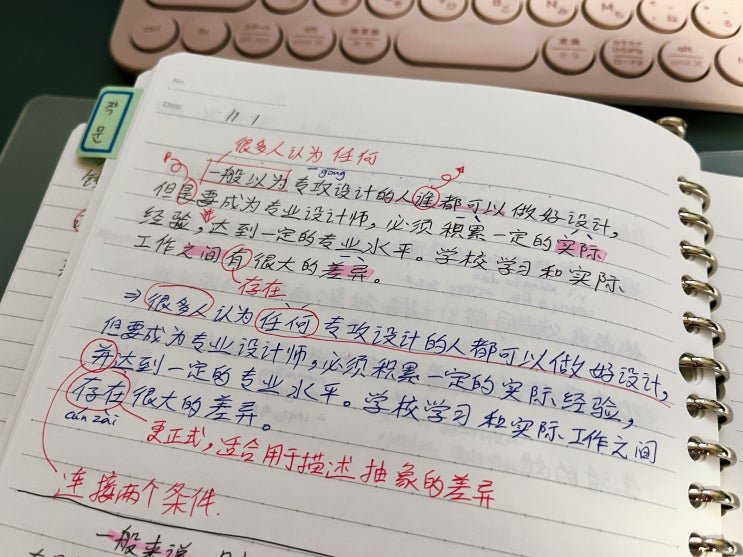 No.
Date 11 1
작문
很多人认为 任何
gōng
一般以为专攻设计的人谁都可以做好设计,
但是要成为专业设计师,必须积累一定的实际
经验,达到一定的专业水平。学校学习和实际
工作之间有很大的差异。
存在
⇒很多人认为任何专攻设计的人都可以做好设计,
但要成为专业设计师,必须积累一定的实际经验,
并达到一定的专业水平。学校学习和实际工作之间
存在很大的差异。
cún zài
更正式,适合用于描述抽象的差异
连接两个条件.
一般来说